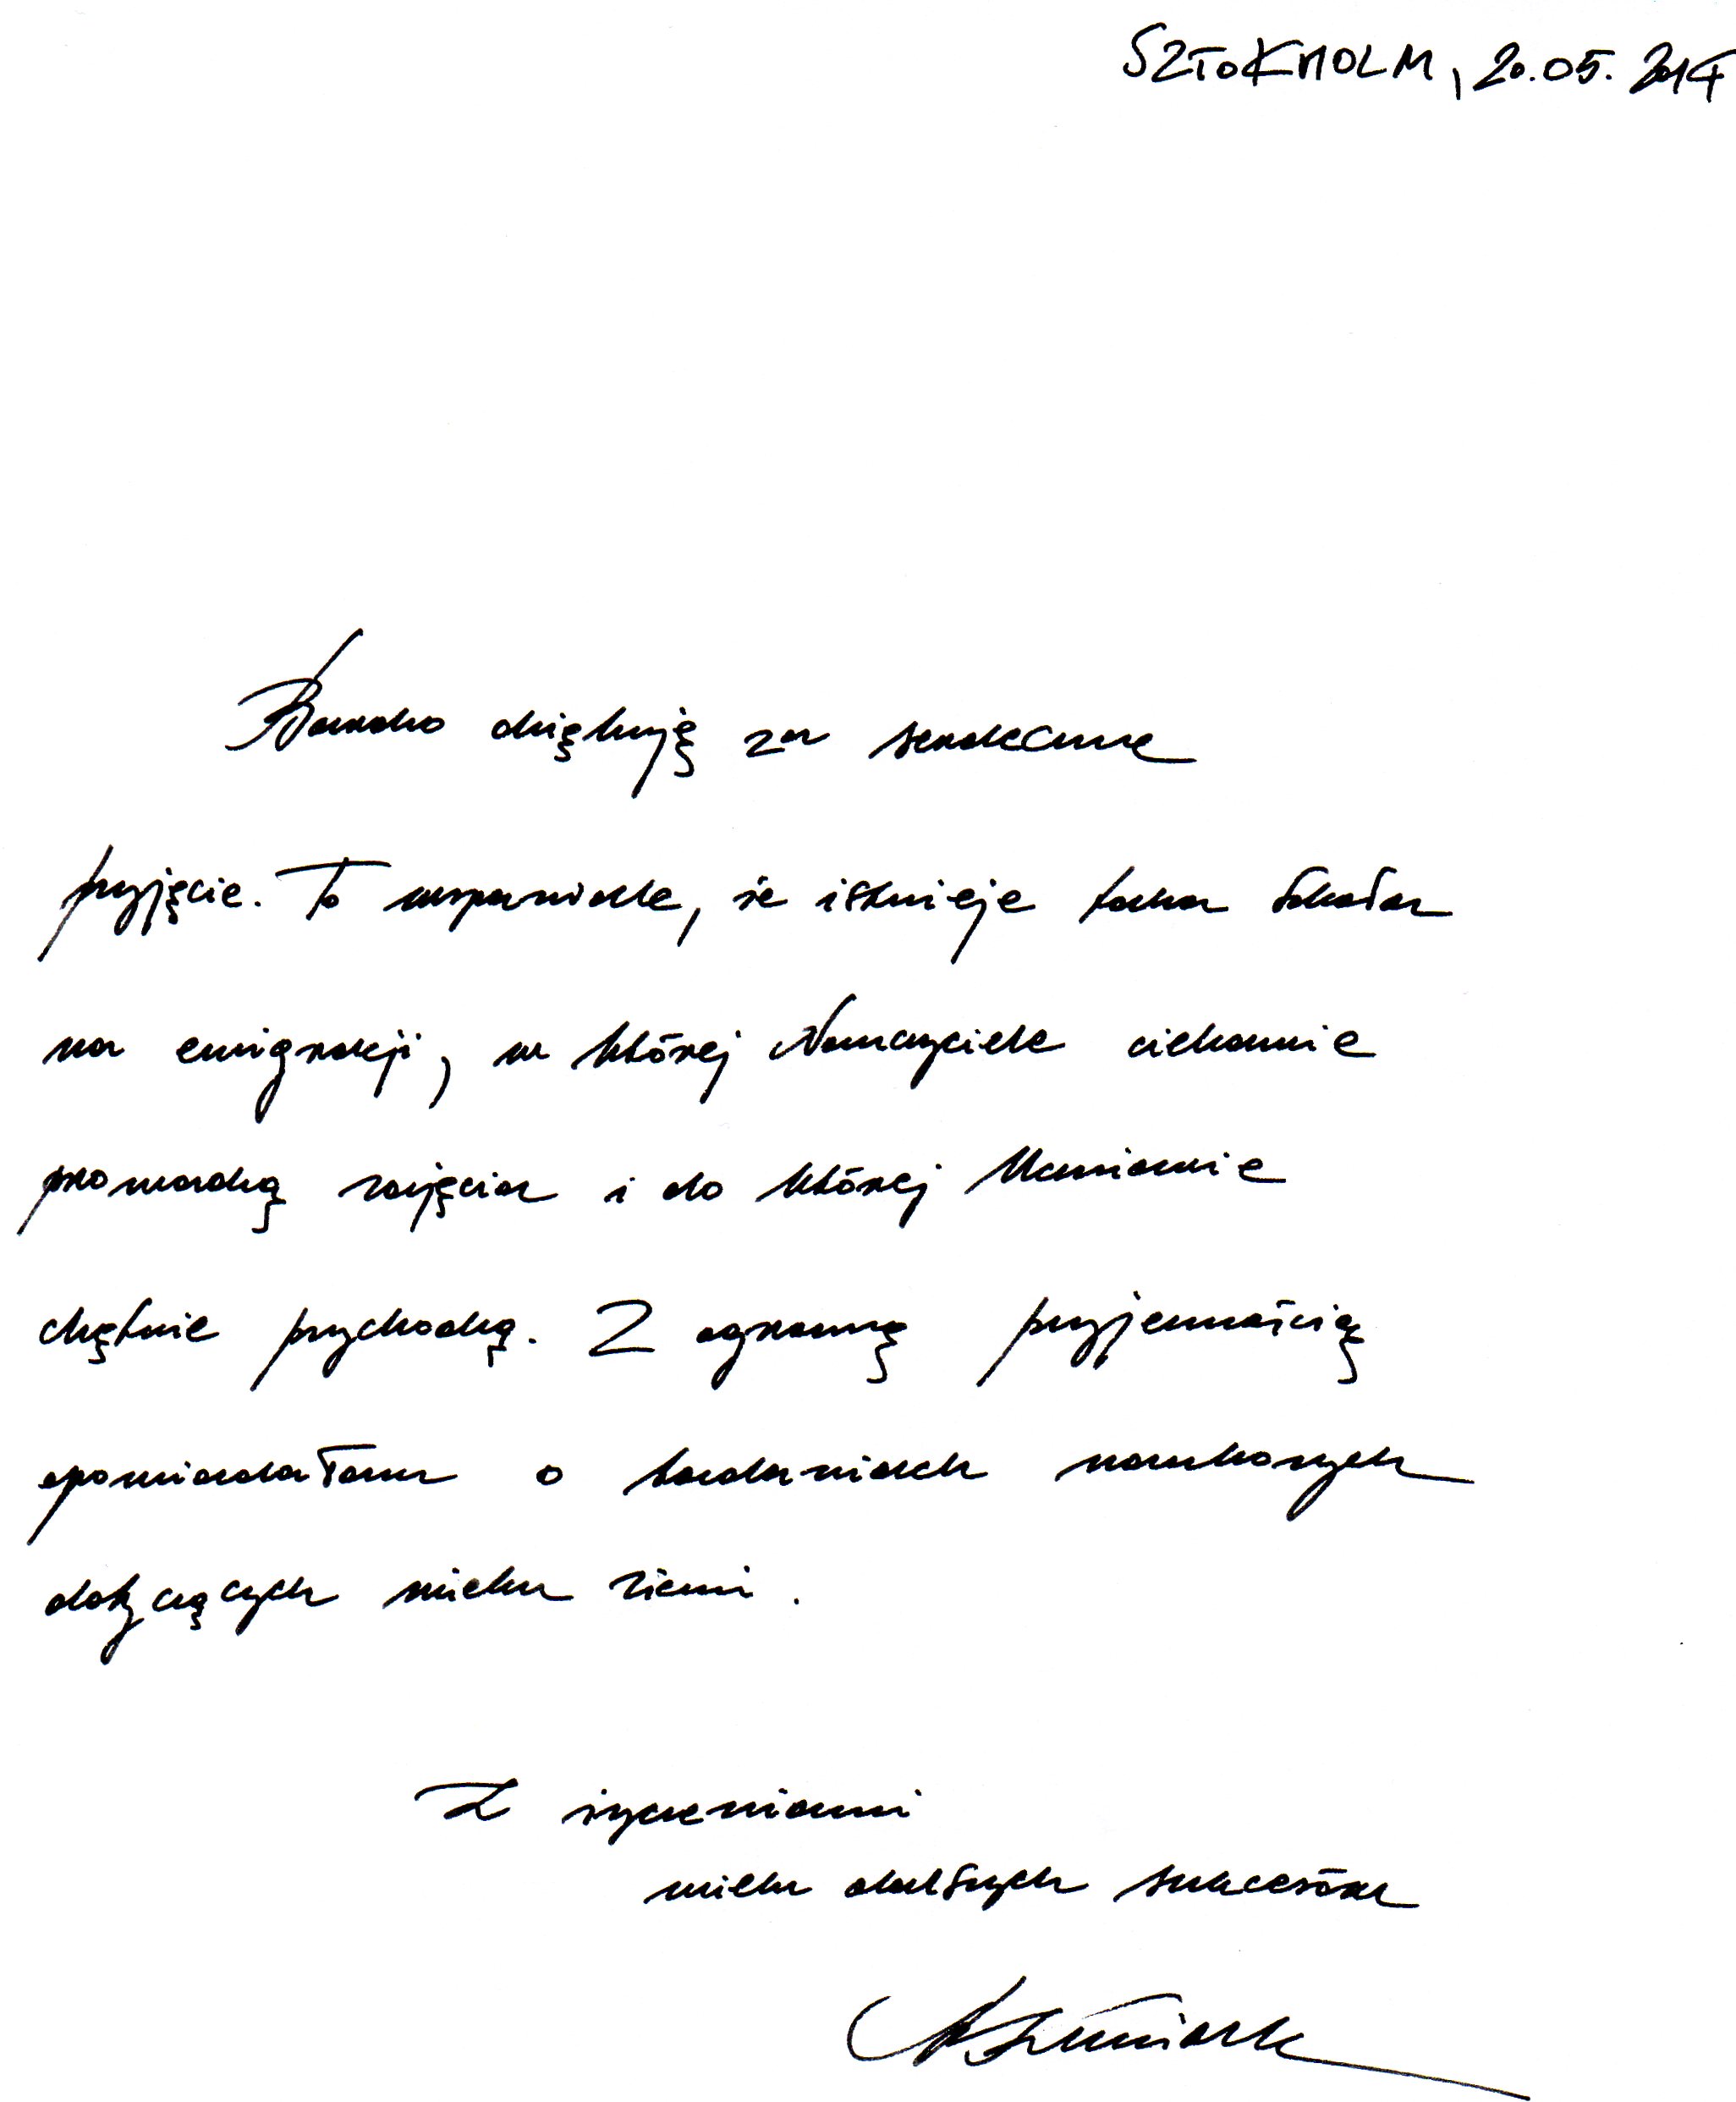 SZTOKHOLM, 20.05.2014
Bardzo dziękuję za serdeczne
przyjęcie. To wspaniałe, że istnieje taka Szkoła
na emigracji, w której Nauczyciele ciekawie
prowadzą zajęcia i do której Uczniowie
chętnie przychodzą. Z ogromną przyjemnością
opowiadałam o badaniach naukowych
dotyczących wieku Ziemi.
Z życzeniami
wielu dalszych sukcesów